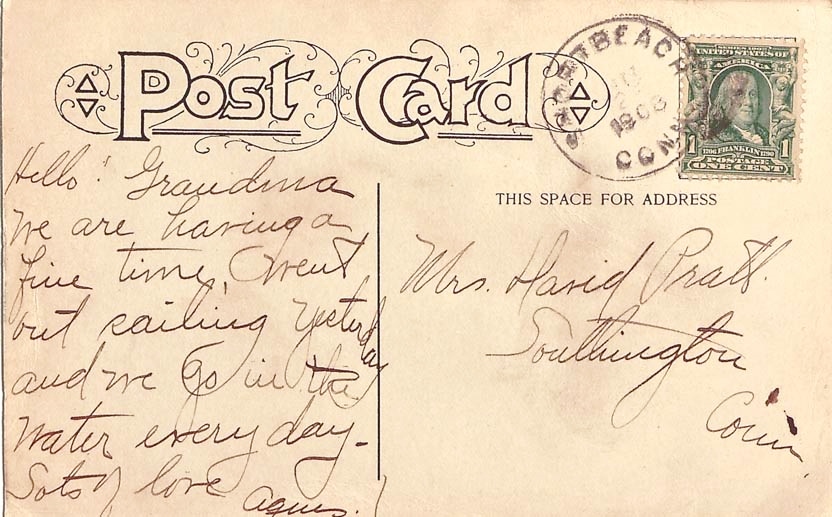 Post Card
BEACH
1908
CONN
SERIES 1902
UNITED STATES OF
AMERICA
1706 FRANKLIN 1790
1 POSTAGE 1
ONE CENT
THIS SPACE FOR ADDRESS
Hello! Grandma
We are having a
fine time, went
out sailing yesterday
and we go in the
water every day-
Lots of love
Agnes.
Mrs. David Pratt.
Southington
Conn.